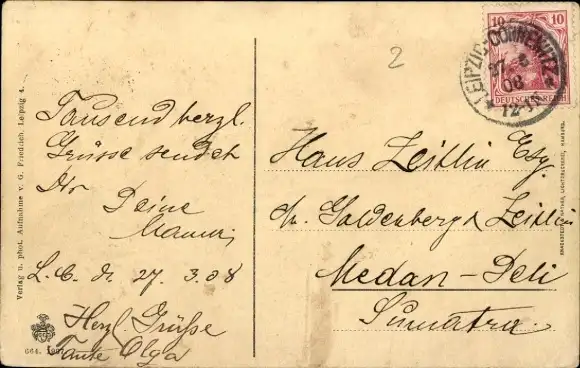 Tausend herzl.
Grüsse sendet
Dir Deine
Mama
L. C. d. 27. 3. 08
Herzl. Grüße
Tante Olga
Verlag u. phot. Aufnahme v. G. Friedrich, Leipzig 4.
664. 1907
2
10 10
DEUTSCHES REICH
LEIPZIG-CONNEWITZ
27 3
08
12-
Hans Zeitlin Esq.
Goldenberg & Zeitlin
Medan-Deli
Sumatra.